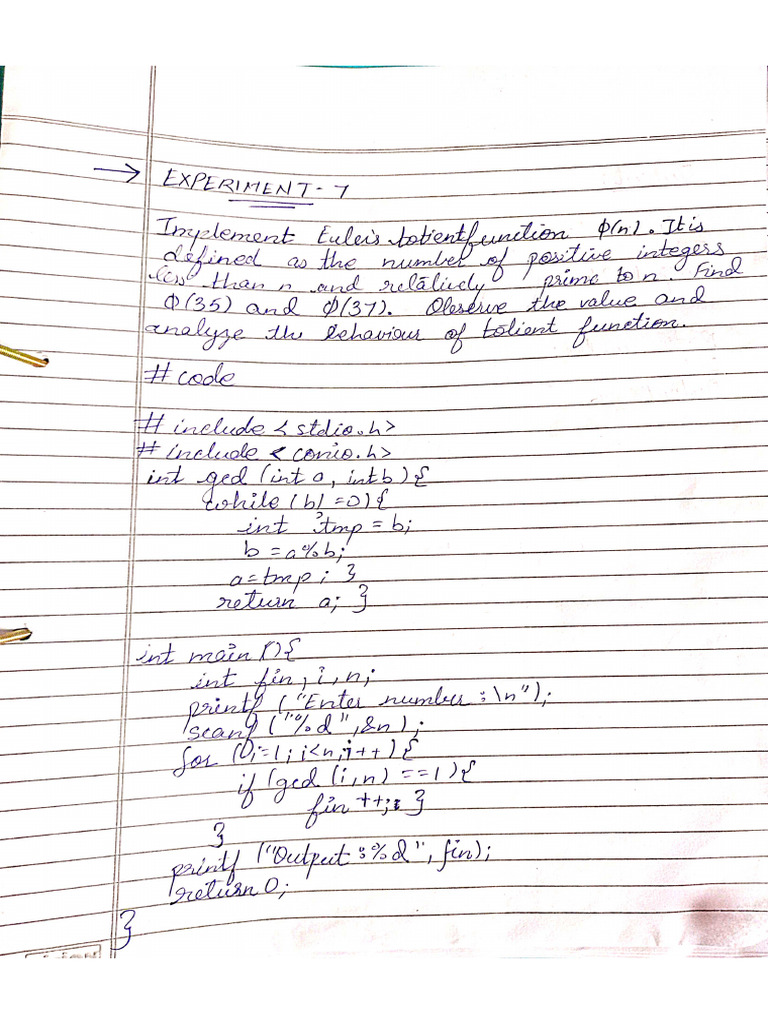 → EXPERIMENT - 7
Implement Euler's totient function Φ(n). It is
defined as the number of positive integers
less than n and relatively prime to n. Find
Φ(35) and Φ(37). Observe the value and
analyze the behaviour of totient function.
# code
# include <stdio.h>
# include <conio.h>
int gcd (int a, int b){
while (b! =0){
int tmp = b;
b = a%b;
a=tmp; }
return a; }
int main (){
int fin, i, n;
printf ("Enter number :\n");
scanf ("%d", &n);
for (i=1; i<n; i++){
if (gcd (i,n) ==1){
fin ++; }
}
printf ("Output :%d", fin);
return 0;
}